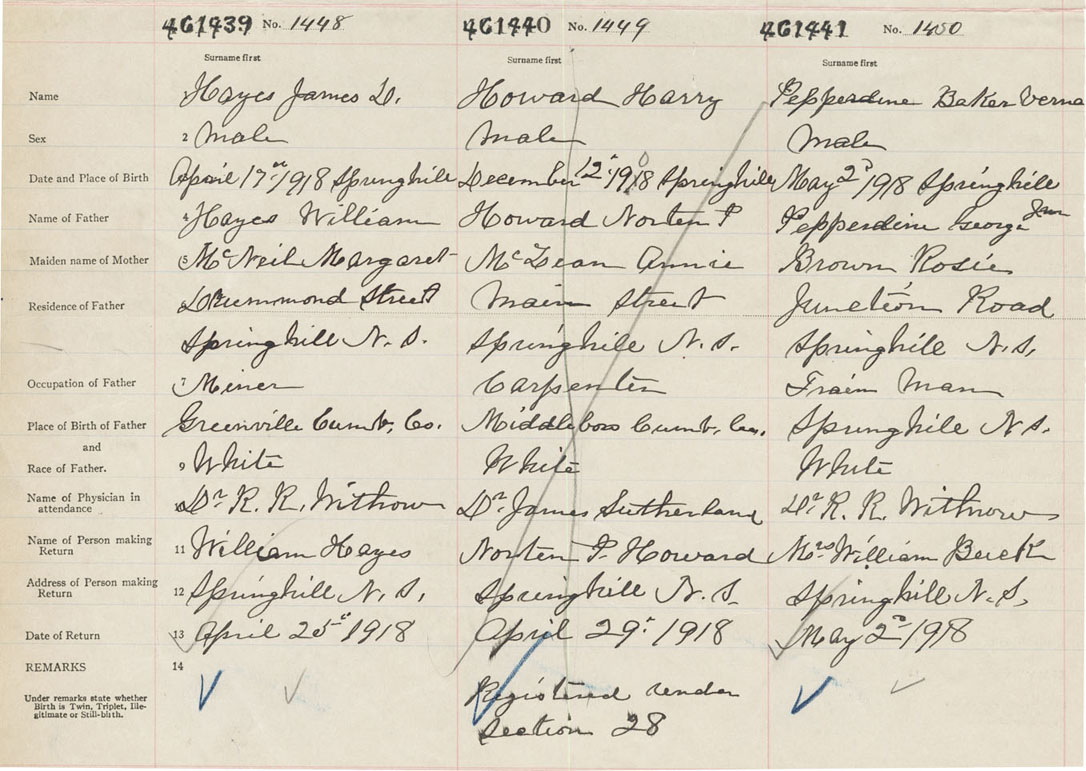 461439 No. 1448 461440 No. 1449 461441 No. 1450
Surname first Surname first Surname first
Name Hayes James D. Howard Harry Pepperdine Baker Verna
Sex 2 Male Male Male
Date and Place of Birth April 17th 1918 Springhill December 12th 1918 Springhill May 2nd 1918 Springhill
Name of Father 4 Hayes William Howard Norten P Pepperdine George Jun
Maiden name of Mother 5 McNeil Margaret McLean Annie Brown Rosie
Residence of Father Drummond Street Main Street Junction Road
Springhill N. S. Springhill N. S. Springhill N. S.
Occupation of Father 7 Miner Carpenter Train Man
Place of Birth of Father Greenville Cumb. Co. Middleboro Cumb. Co. Springhill N S.
and
Race of Father. 9 White White White
Name of Physician in attendance Dr R. R. Withrow Dr James Sutherland Dr R. R. Withrow
Name of Person making Return 11 William Hayes Norten P. Howard Mrs William Buck
Address of Person making Return 12 Springhill N. S. Springhill N. S. Springhill N. S.
Date of Return 13 April 25th 1918 April 29th 1918 May 2nd 1918
REMARKS 14
Under remarks state whether Birth is Twin, Triplet, Ille-
gitimate or Still-birth.
Registered under
Section 28